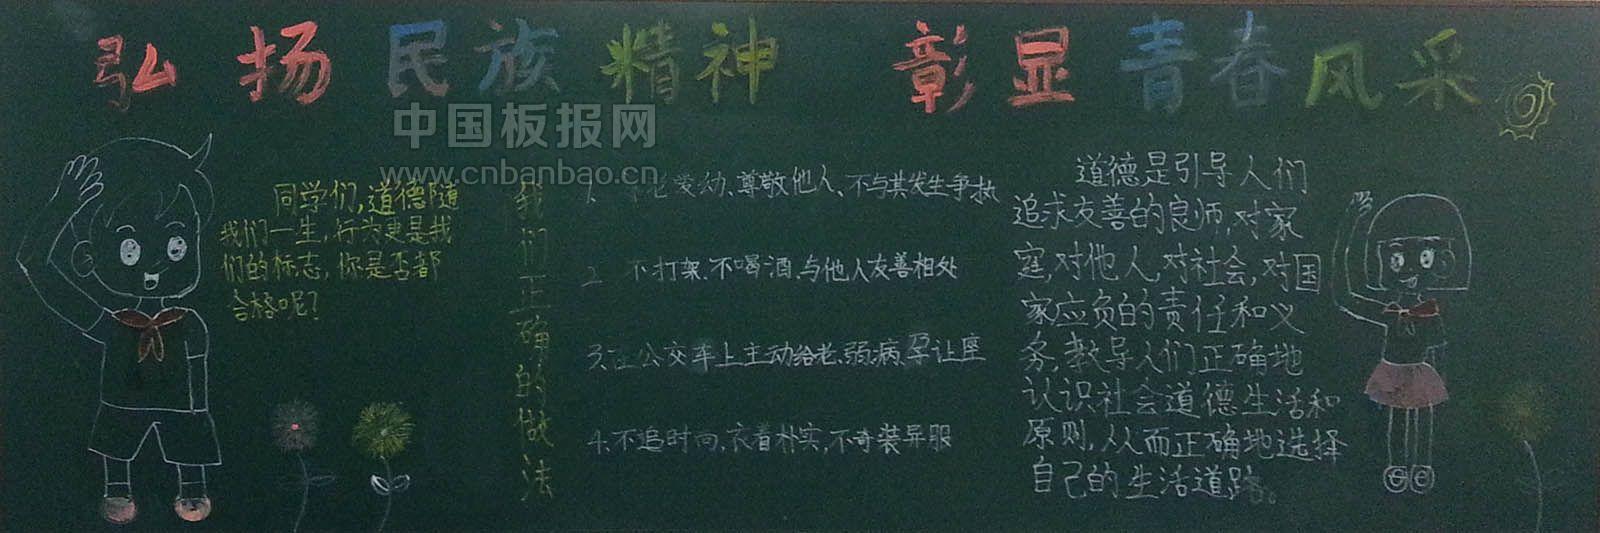 弘扬民族精神 彰显青春风采
中国板报网
www.cnbanbao.cn
同学们,道德随
我们一生,行为更是我
们的标志,你是否都
合格呢?
我们正确的做法
1. 老爱幼、尊敬他人、不与其发生争执
2 不打架、不喝酒、与他人友善相处
3.在公交车上主动给老、弱、病、孕让座
4.不追时尚,衣着朴实,不奇装异服
道德是引导人们
追求友善的良师,对家
庭,对他人,对社会,对国
家应负的责任和义
务,教导人们正确地
认识社会道德生活和
原则,从而正确地选择
自己的生活道路。